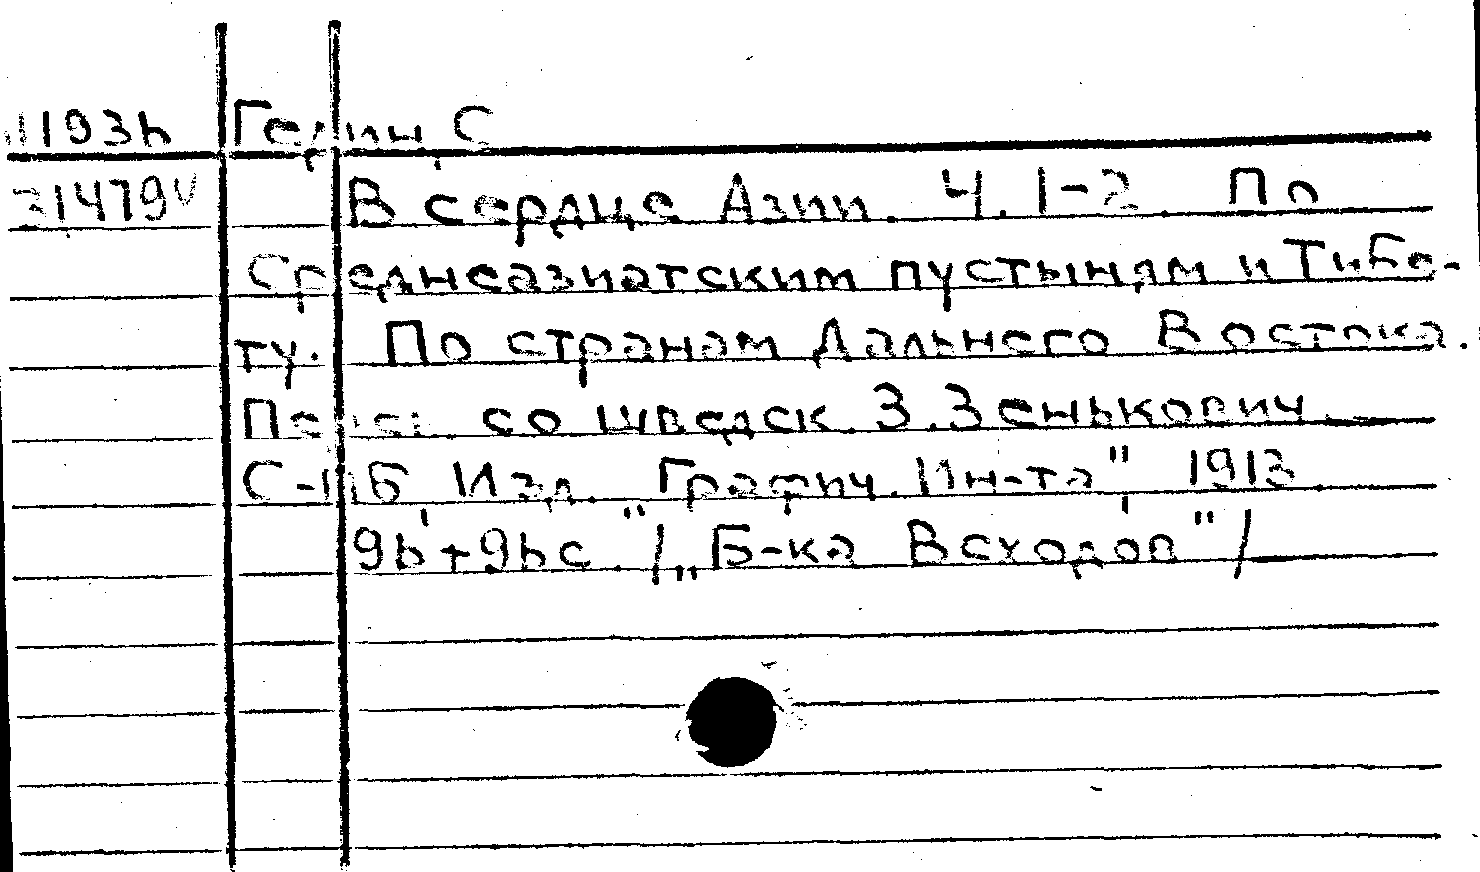 1193h Гедин, С
31479V В сердце Азии. Ч. 1-2. По
Среднеазиатским пустыням и Тибе-
ту. По странам Дальнего Востока.
Перев. со шведск. З. Зенькович.
С-ПБ Изд. "Графич. Ин-та", 1913
9b'+9bc. /„Б-ка Всходов"/